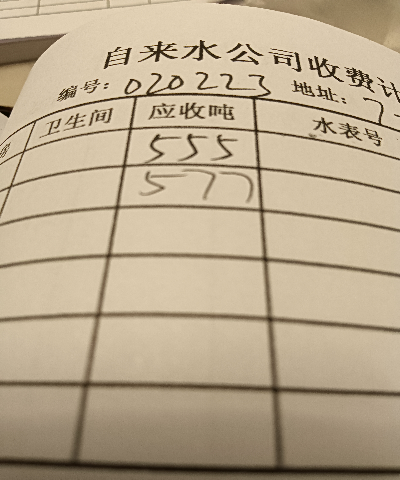 自来水公司收费计
编号: 020223 地址: 7-
卫生间 应收吨 水表号
555
577